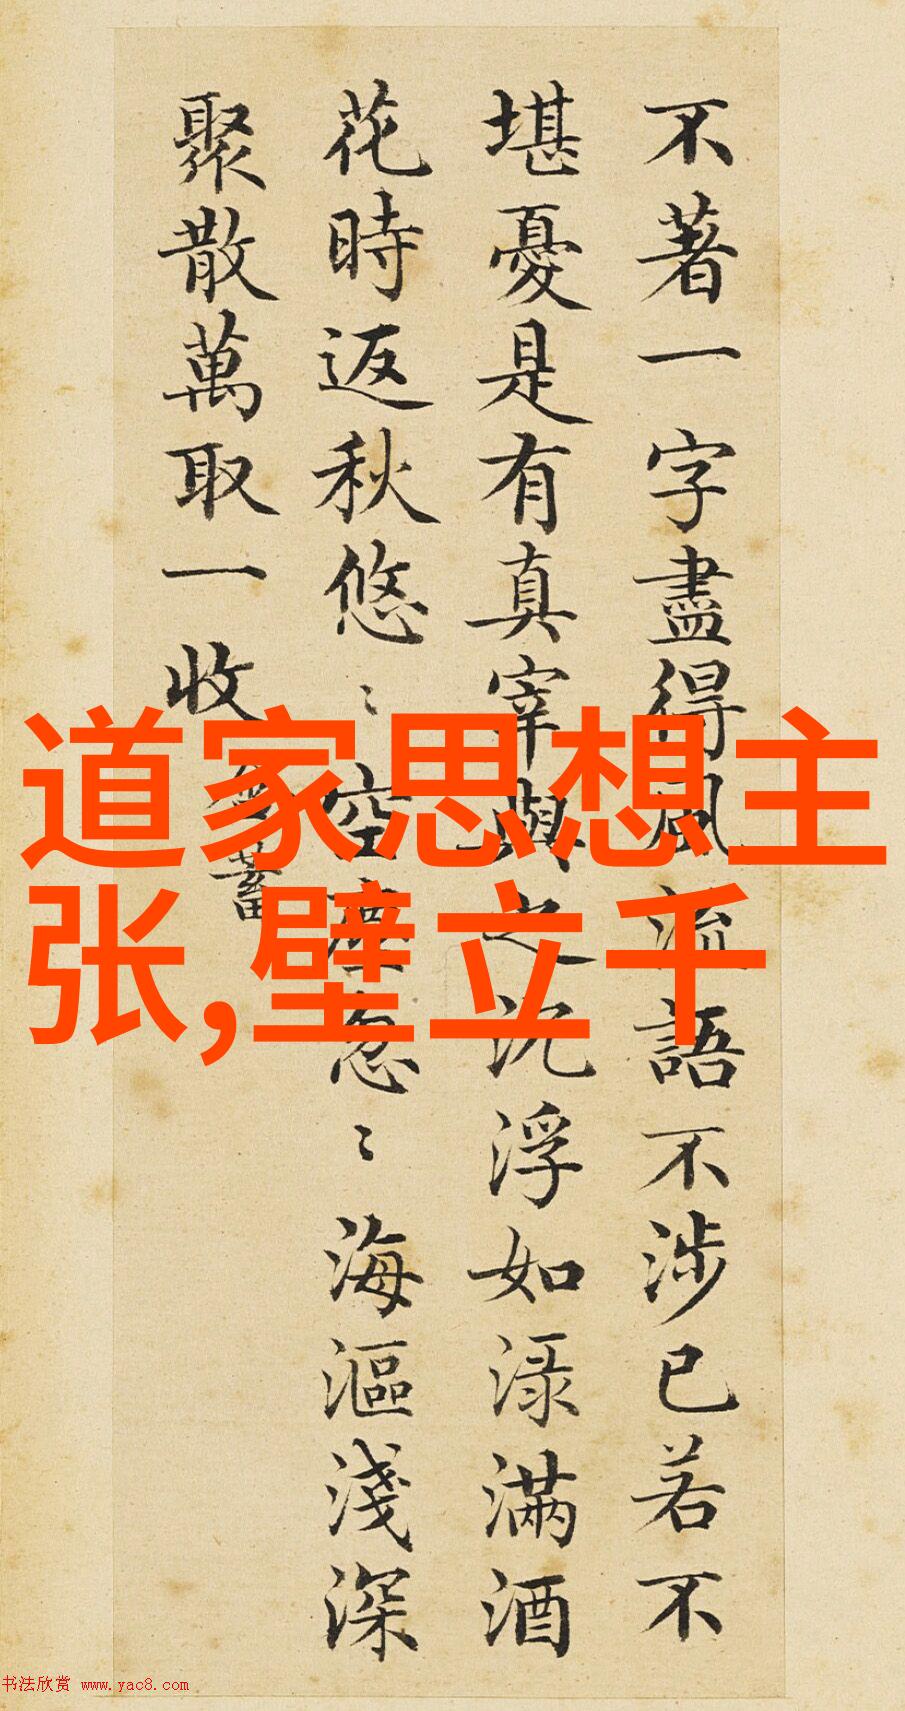 不著一字盡得風流語不涉已若不
堪憂是有真宰與之沉浮如渌滿酒
花時返秋悠〻空塵忽〻海漚淺深
聚散萬取一收
蓄
道家思想主
张,壁立千
书法欣赏 www.yac8.com